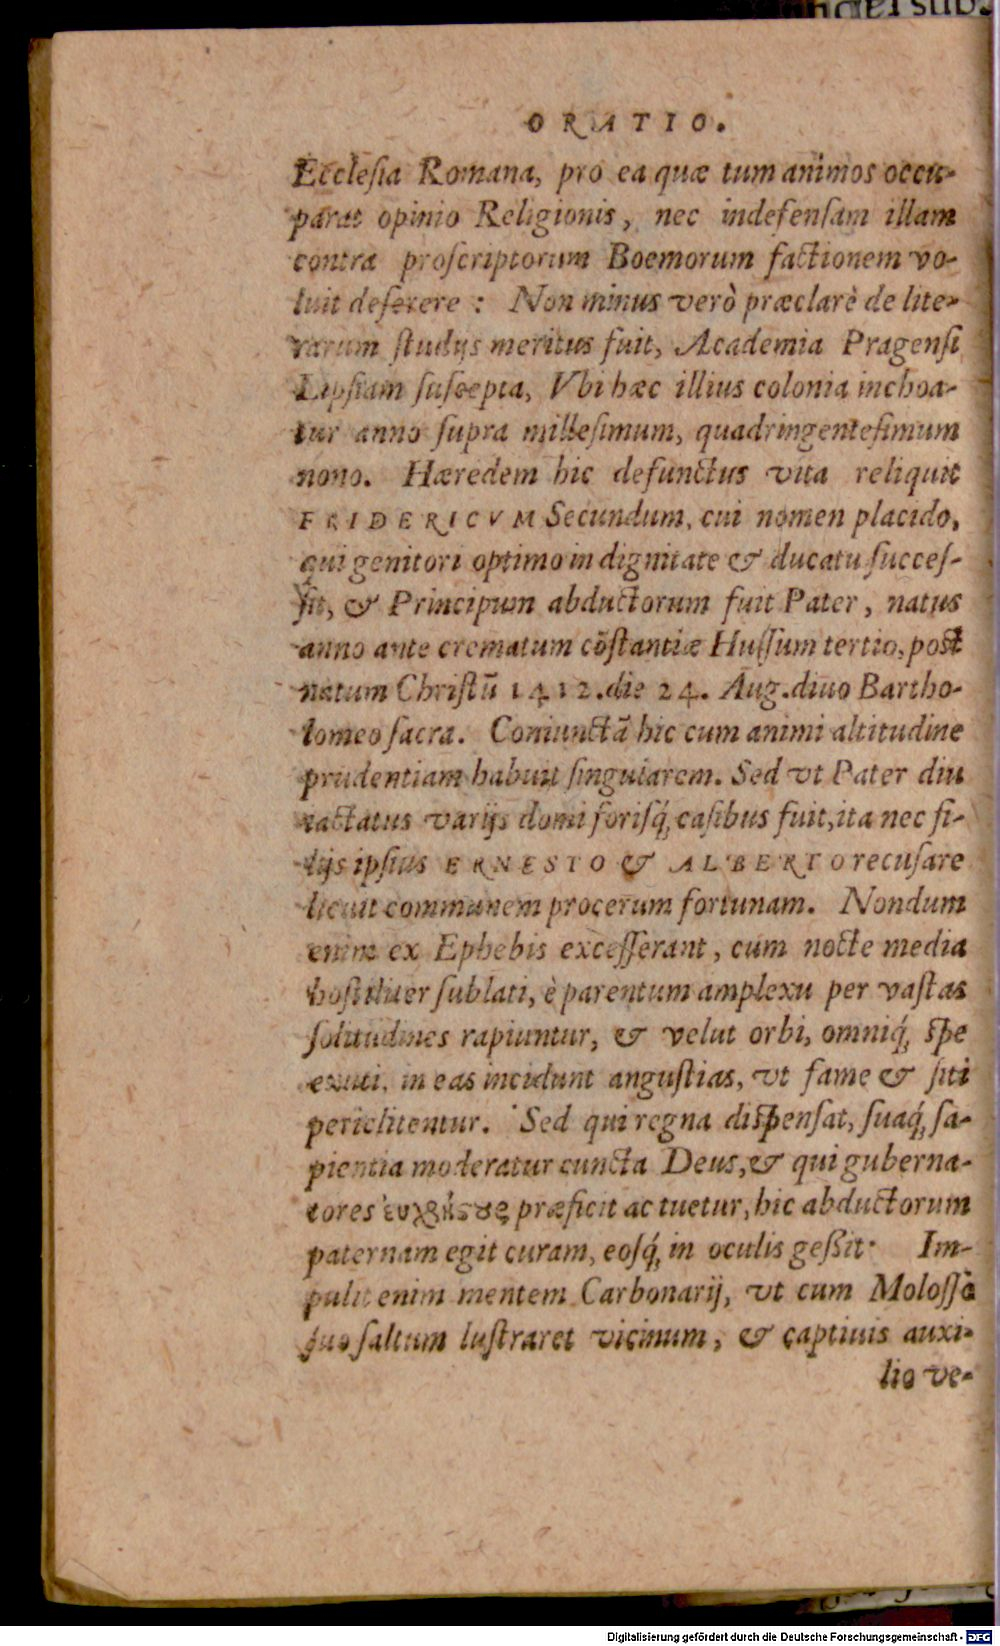 ORATIO.
Ecclesia Romana, pro ea quæ tum animos occu-
parat opinio Religionis, nec indefensam illam
contra proscriptorum Boemorum factionem vo-
luit deserere : Non minus verò præclarè de lite-
rarum studijs meritus fuit, Academia Pragensi
Lipsiam suscepta, Vbi hæc illius colonia inchoa-
tur anno supra millesimum, quadringentesimum
nono. Hæredem hic defunctus vita reliquit
FRIDERICVM Secundum, cui nomen placido,
qui genitori optimo in dignitate & ducatu succes-
sit, & Principum abductorum fuit Pater, natus
anno ante crematum cõstantiæ Hussum tertio, post
natum Christũ 1412. die 24. Aug. diuo Bartho-
lomeo sacra. Coniunctã hic cum animi altitudine
prudentiam habuit singularem. Sed vt Pater diu
iactatus varijs domi forisq́; casibus fuit, ita nec fi-
lijs ipsius ERNESTO & ALBERTO recusare
licuit communem procerum fortunam. Nondum
enim ex Ephebis excesserant, cum nocte media
hostiliter sublati, è parentum amplexu per vastas
solitudines rapiuntur, & velut orbi, omniq́; spe
exuti, in eas incidunt angustias, vt fame & siti
periclitentur. Sed qui regna dispensat, suaq́; sa-
pientia moderatur cuncta Deus, & qui guberna-
tores præficit ac tuetur, hic abductorum
paternam egit curam, eosq́; in oculis geßit· Im-
pulit enim mentem Carbonarij, vt cum Molosso
suo saltum lustraret vicinum, & captiuis auxi-
lio ve-
Digitalisierung gefördert durch die Deutsche Forschungsgemeinschaft - DFG